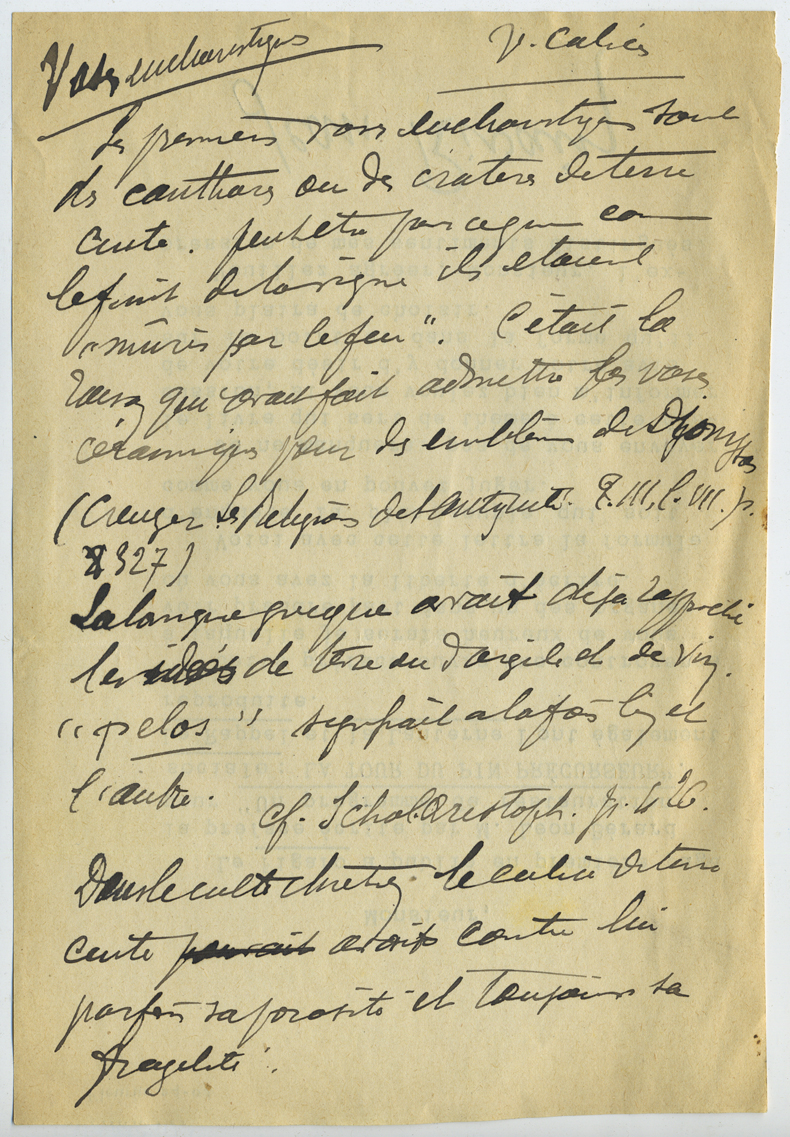 Vases eucharistiques
V. calices
Les premiers vases eucharistiques sont
des canthares ou des cratères de terre
cuite. peut etre parceque com
le fruit de la vigne ils etaient
"mûris par le feu". C'était la
raison qui avait fait admettre les vases
céramiques pour des emblèmes de Dyonysos
(Creuzer Les Religions de l'antiquité. T. III, l. VII. p.
327)
La langue grecque avait déja rapproché
les idées de terre ou d'argile et de vin.
"pelos" signifiait a la fois l'un et
l'autre.
cf. Schol. Aristoph. p. 426.
Dans le culte chretien le calice de terre
cuite pouvait avait contre lui
parfois sa porosité et toujours sa
fragilité.